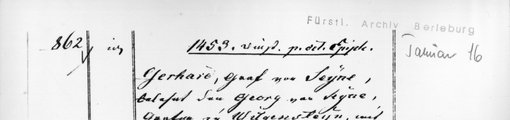 Fürstl. Archiv Berleburg
862
1453. vigil. p. oct. Epiph.
Januar 16
Gerhard, Graf von Seyne,
belehnt den Georg von Seyne,
Grafen zu Witgenstein, mit